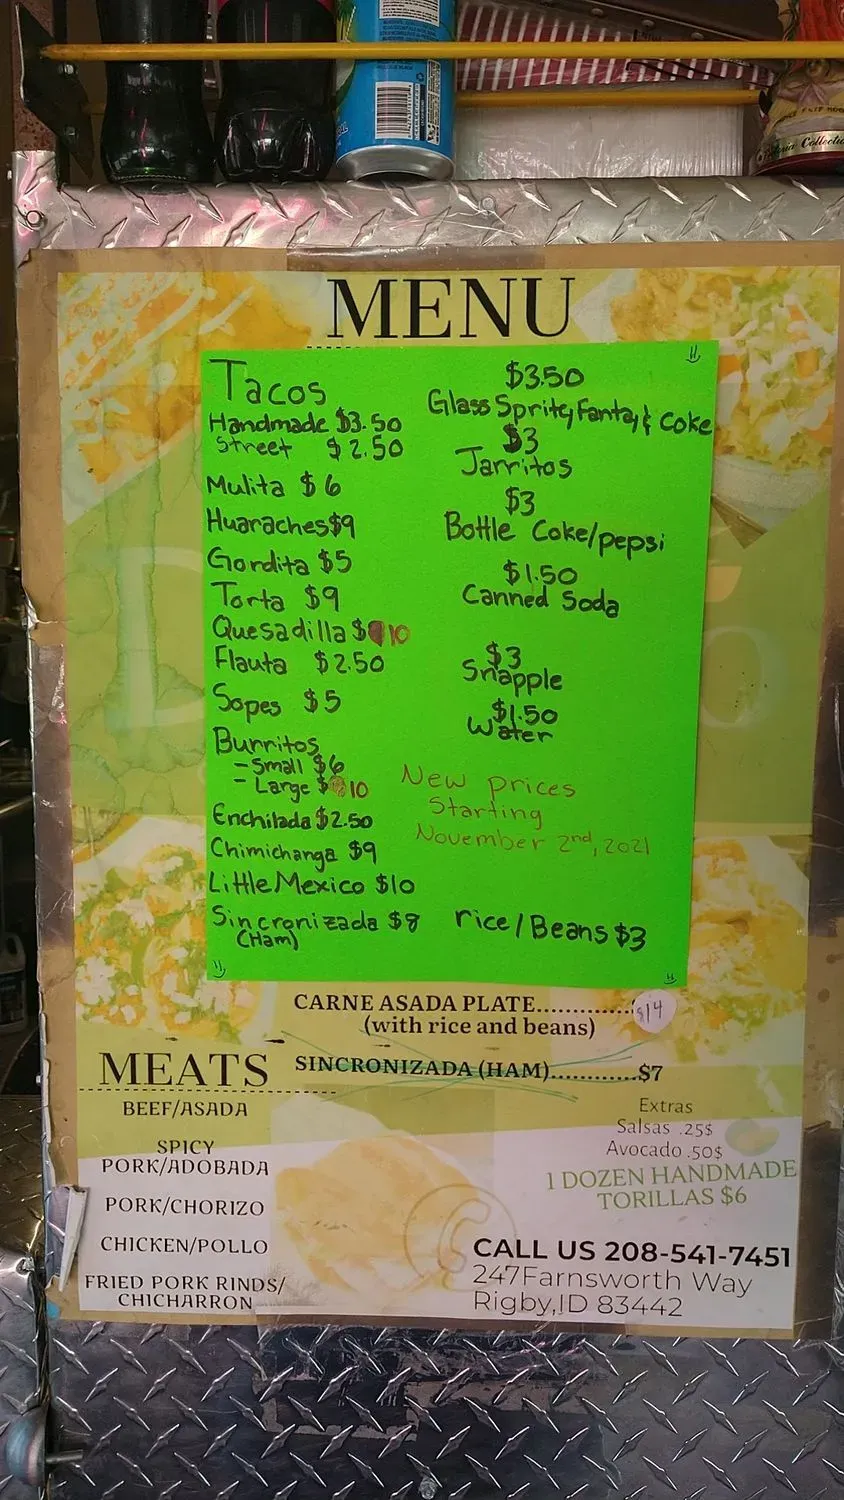 MENU
Tacos
Handmade $3.50
Street $2.50
Mulita $6
Huaraches $9
Gordita $5
Torta $9
Quesadilla $10
Flauta $2.50
Sopes $5
Burritos
- Small $6
- Large $10
Enchilada $2.50
Chimichanga $9
Little Mexico $10
Sincronizada $8
(Ham)
$3.50
Glass Sprite, Fanta, & Coke
$3
Jarritos
$3
Bottle Coke/pepsi
$1.50
Canned Soda
$3
Snapple
$1.50
Water
New prices
Starting
November 2nd, 2021
rice/Beans $3
CARNE ASADA PLATE.............$14
(with rice and beans)
SINCRONIZADA (HAM)............$7
MEATS
BEEF/ASADA
SPICY
PORK/ADOBADA
PORK/CHORIZO
CHICKEN/POLLO
FRIED PORK RINDS/
CHICHARRON
Extras
Salsas .25$
Avocado .50$
1 DOZEN HANDMADE
TORILLAS $6
CALL US 208-541-7451
247Farnsworth Way
Rigby,ID 83442